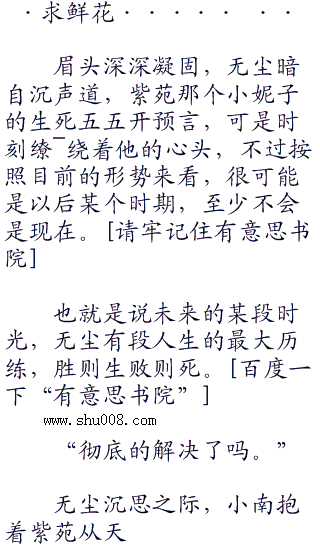 ·求鲜花······ ··
眉头深深凝固，无尘暗
自沉声道，紫苑那个小妮子
的生死五五开预言，可是时
刻缭¯绕着他的心头，不过按
照目前的形势来看，很可能
是以后某个时期，至少不会
是现在。[请牢记住有意思书
院]
也就是说未来的某段时
光，无尘有段人生的最大历
练，胜则生败则死。[百度一
下“有意思书院”]
www.shu008.com
“彻底的解决了吗。”
无尘沉思之际，小南抱
着紫苑从天